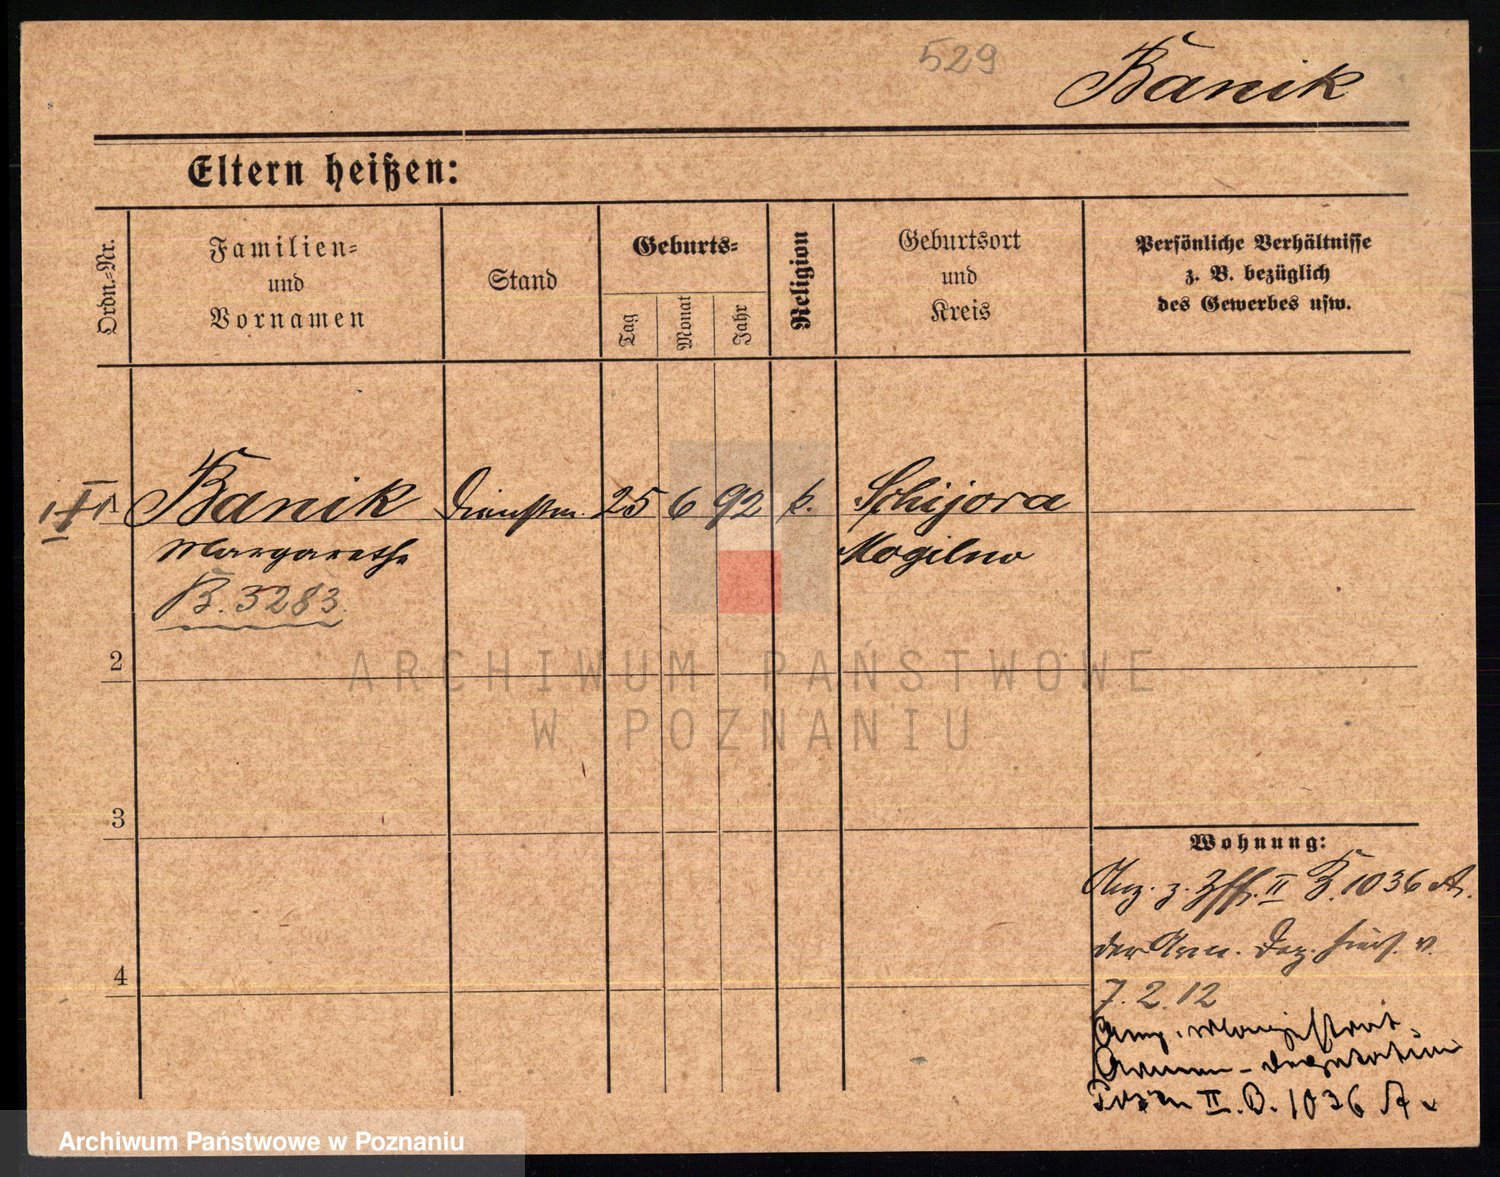 529
Banik
Eltern heißen:
Ordn.-Nr.
Familien-
und
Vornamen
Stand
Geburts-
Tag
Monat
Jahr
Religion
Geburtsort
und
Kreis
Persönliche Verhältnisse
z. B. bezüglich
des Gewerbes usw.
Banik Dienstm. 25 6 92 k. Schijora
Margarethe Mogilno
B. 3283.
2
3
4
Wohnung:
Anz. z. II B. 1036 A.
der Arm. Dep. hies. v.
7. 2. 12
Anz. Magistrat
Armen-deputation
Posen II. B. 1036 A
ARCHIWUM PAŃSTWOWE
W POZNANIU
Archiwum Państwowe w Poznaniu